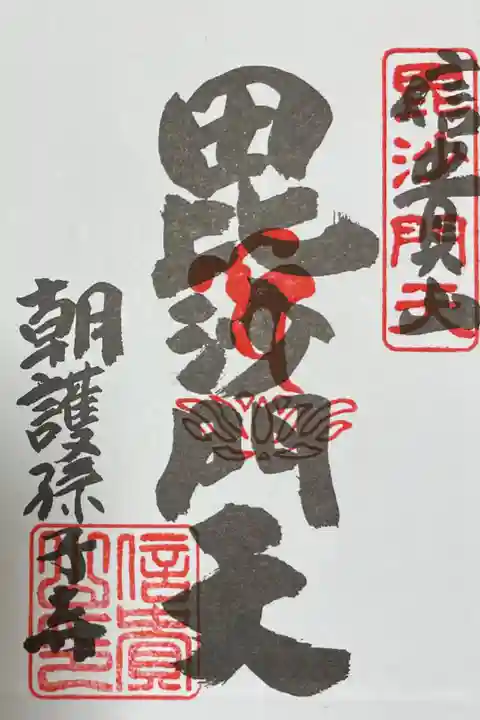 信貴山
毘沙門天
毘沙門天
朝護孫子寺
信貴